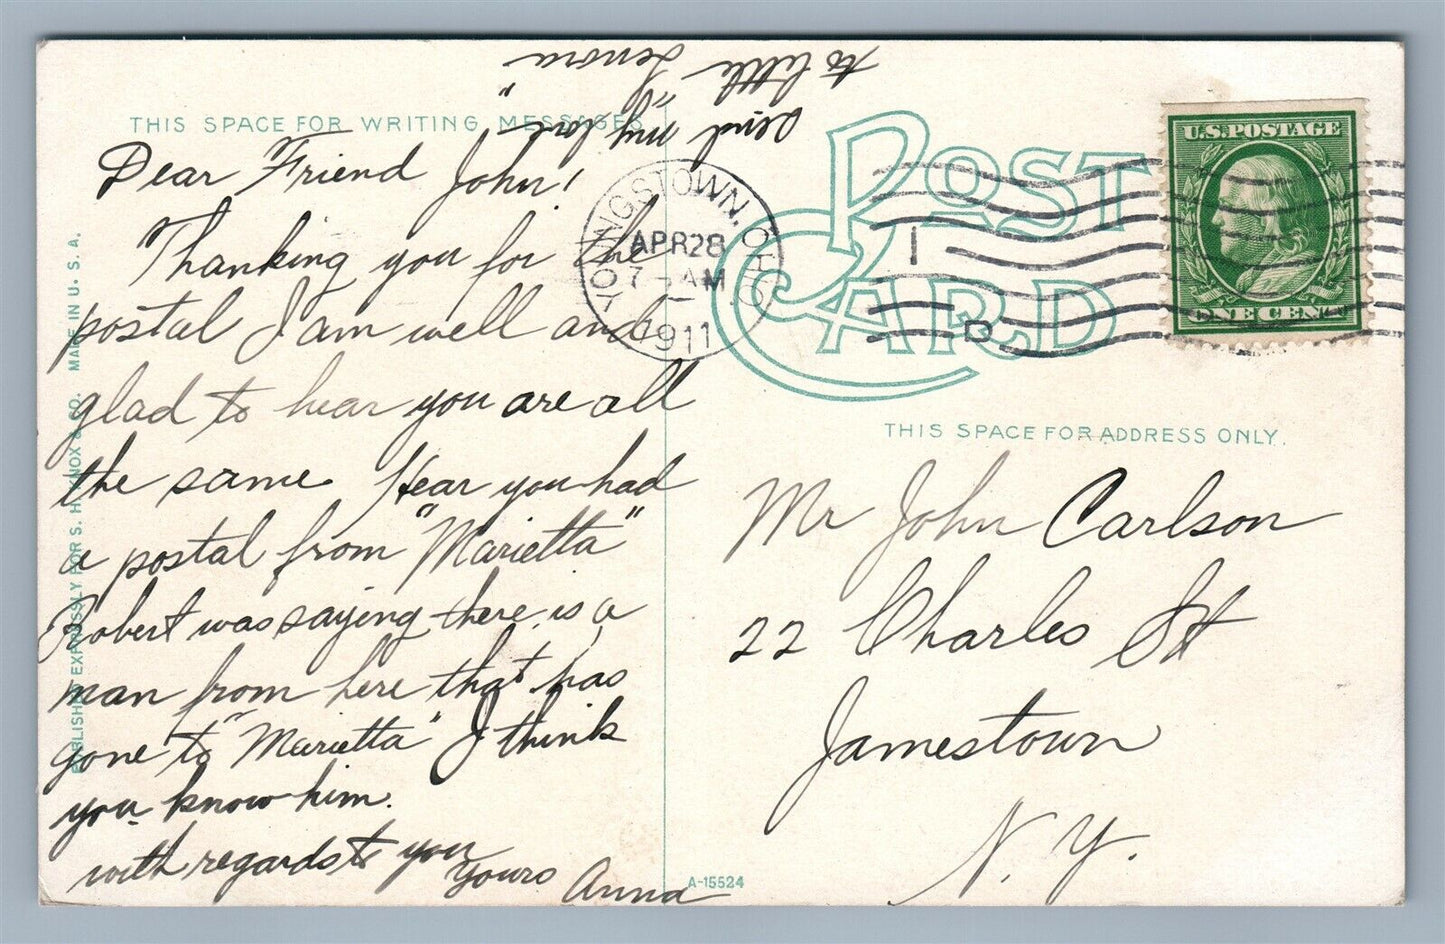 THIS SPACE FOR WRITING MESSAGES
Dear Friend John!
Thanking you for the
postal I am well and
glad to hear you are all
the same. Hear you had
a postal from "Marietta"
Robert was saying there is a
man from here that has
gone to "Marietta" I think
you know him.
with regards to you
Yours Anna
send my love
to little "Lenora"
PUBLISHED EXPRESSLY FOR S. H. KNOX & CO. MADE IN U. S. A.
A-15524
POST
CARD
YOUNGSTOWN, OHIO
APR 28
7 - AM
1911
1
D
U.S.POSTAGE
ONE CENT
THIS SPACE FOR ADDRESS ONLY.
Mr John Carlson
22 Charles St
Jamestown
N. Y.